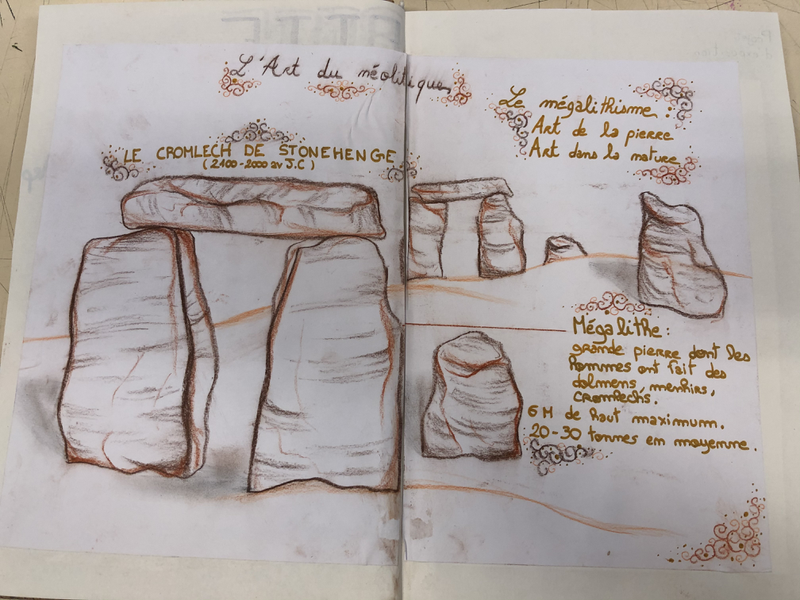 L'Art du néolitique
LE CROMLECH DE STONEHENGE
(2100-2000 av J.C)
Le mégalithisme :
Art de la pierre
Art dans la nature
Mégalithe :
grande pierre dont les
hommes ont fait des
dolmens, menhirs,
cromlechs.
6 M de haut maximum.
20-30 tonnes en moyenne.